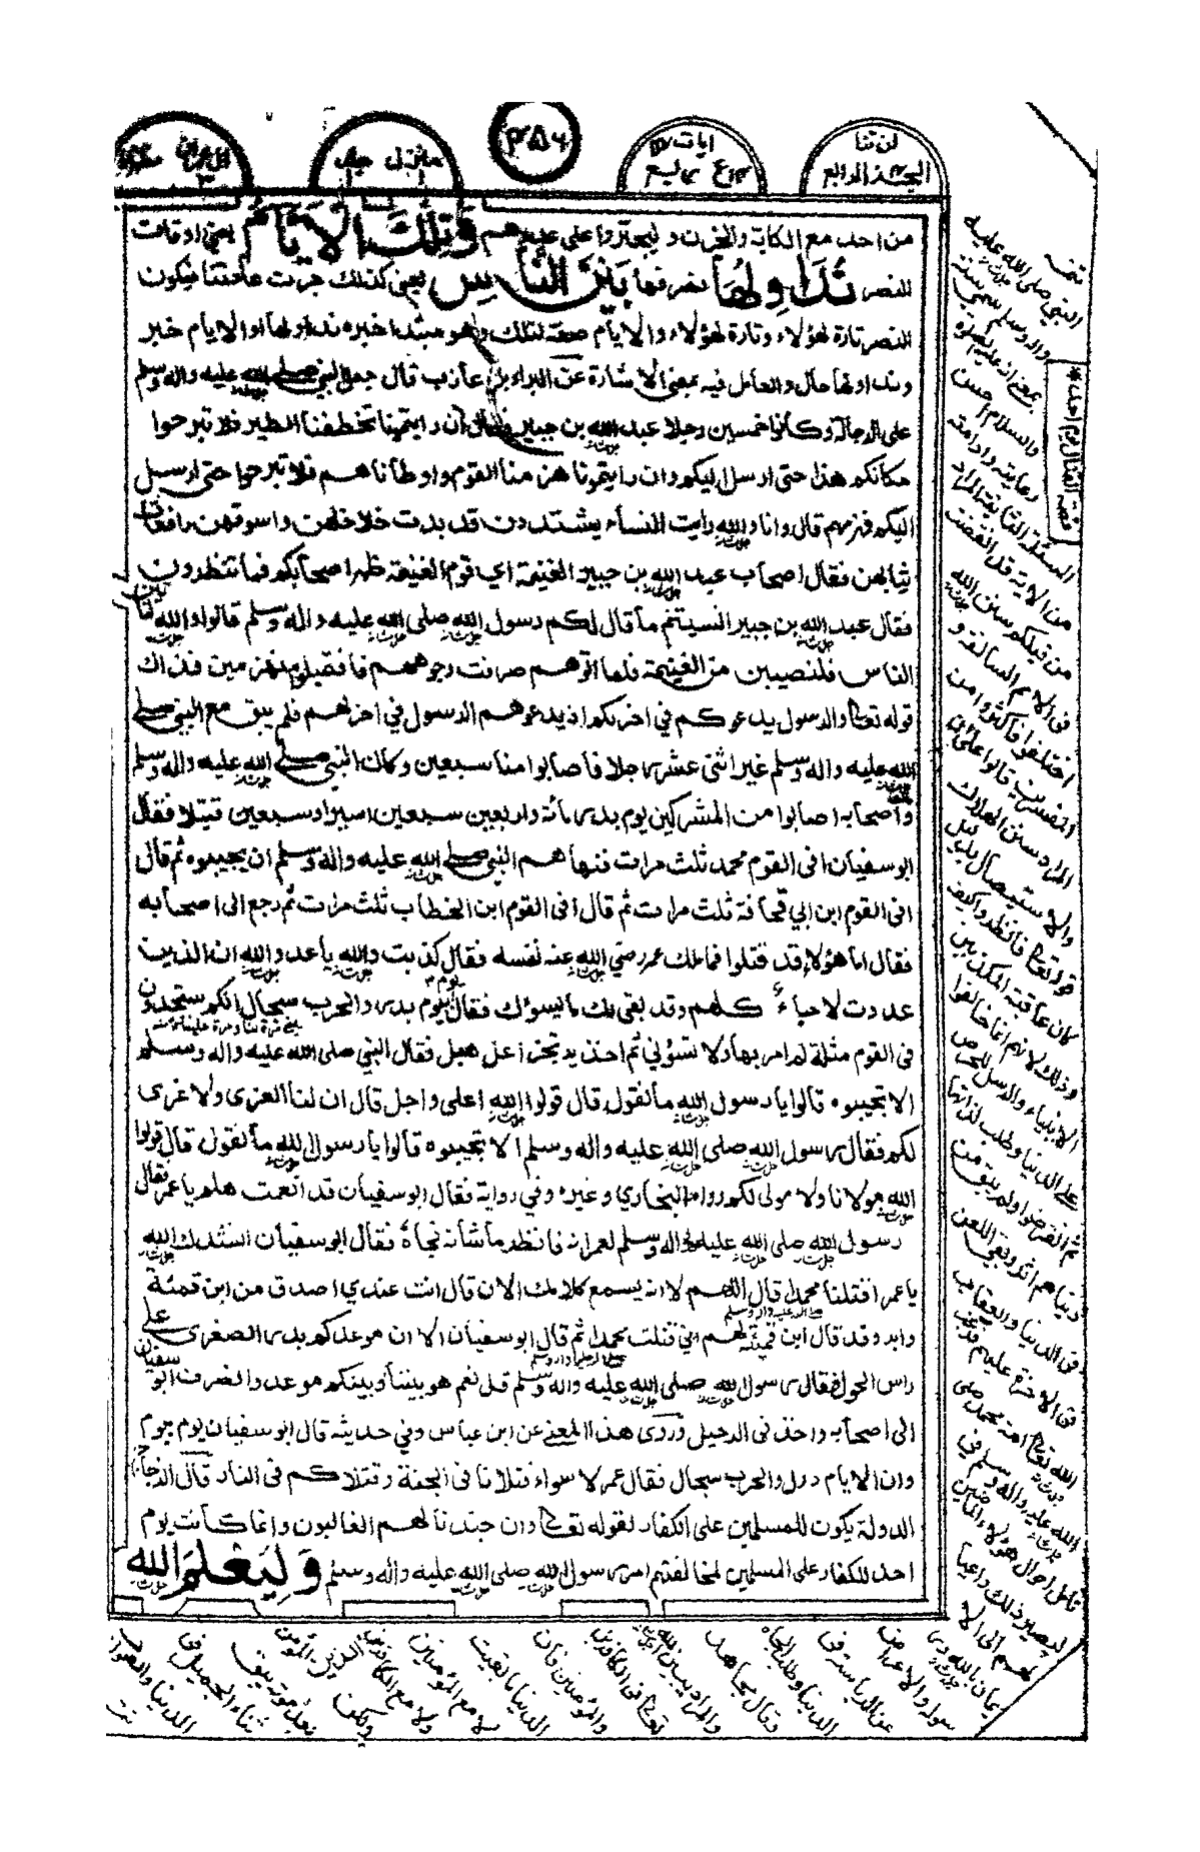 لن تنا
الجزء الرابع
ايات
ربع
۲۵۶
منزل
ال عمران
۳
من احد مع الكابة والحزن ولم يجتروا على عدوهم وَتِلْكَ الْاَيَّامُ يعني اوقات
النصر نُدَاوِلُهَا نصرفها بَيْنَ النَّاسِ يعني كذلك جرت عادتنا فيكون
النصر تارة لهؤلاء وتارة لهؤلاء والايام صفة لتلك وهو مبتدا خبره نداولها او الايام خبر
ونداولها حال والعامل فيه بمعنى الاشارة عن البراء بن عازب قال جعل النبي صلى الله عليه واله وسلم
على الرجالة وكانوا خمسين رجلا عبد الله بن جبير فقال ان رايتمونا تخطفنا الطير فلا تبرحوا
مكانكم هذا حتى ارسل اليكم وان رايتمونا هزمنا القوم واوطأناهم فلا تبرحوا حتى ارسل
اليكم فهزمهم قال وانا والله رايت النساء يشتددن قد بدت خلاخلهن واسوقهن رافعات
ثيابهن فقال اصحاب عبد الله بن جبير الغنيمة اي قوم الغنيمة ظهر اصحابكم فما تنتظرون
فقال عبد الله بن جبير انسيتم ما قال لكم رسول الله صلى الله عليه واله وسلم قالوا والله لناتين
الناس فلنصيبن من الغنيمة فلما اتوهم صرفت وجوههم فاقبلوا منهزمين فذاك
قوله تعالى والرسول يدعوكم في اخرىكم اذ يدعوهم الرسول في اخرىهم فلم يبق مع النبي صلى
الله عليه واله وسلم غير اثنى عشر رجلا فاصابوا منا سبعين وكان النبي صلى الله عليه واله وسلم
واصحابه اصابوا من المشركين يوم بدر مائة واربعين سبعين اسيرا وسبعين قتيلا فقال
ابو سفيان افى القوم محمد ثلث مرات فنهاهم النبي صلى الله عليه واله وسلم ان يجيبوه ثم قال
افى القوم ابن ابي قحافة ثلث مرات ثم قال افى القوم ابن الخطاب ثلث مرات ثم رجع الى اصحابه
فقال اما هؤلاء قد قتلوا فما ملك عمر رضي الله عنه نفسه فقال كذبت والله يا عدو الله ان الذين
عددت لاحياء كلهم وقد بقى لك ما يسوؤك فقال يوم بيوم بدر والحرب سجال انكم ستجدون
في القوم مثلة لم امر بها ولا تسؤني ثم اخذ يرتجز اعل هبل فقال النبي صلى الله عليه واله وسلم
الا تجيبوه قالوا يا رسول الله ما نقول قال قولوا الله اعلى واجل قال ان لنا العزى ولا عزى
لكم فقال رسول الله صلى الله عليه واله وسلم الا تجيبوه قالوا يا رسول الله ما نقول قال قولوا
الله مولانا ولا مولى لكم رواه البخاري وغيره وفي رواية فقال ابو سفيان قد انعمت هلم يا عمر فقال
رسول الله صلى الله عليه واله وسلم لعمر ائته فانظر ما شانه فجاءه فقال ابو سفيان انشدك الله
يا عمر اقتلنا محمدا قال اللهم لا انه يسمع كلامك الان قال انت عندي اصدق من ابن قمئة
وابر وقد قال ابن قمئة لهم اني قتلت محمدا ثم قال ابو سفيان الا ان موعدكم بدر الصغرى على
راس الحول فقال رسول الله صلى الله عليه واله وسلم قل نعم هو بيننا وبينكم موعد وانصرف ابو سفيان
الى اصحابه واخذ في الرحيل وروى هذا المعنى عن ابن عباس وفي حديثه قال ابو سفيان يوم بيوم
وان الايام دول والحرب سجال فقال عمر لا سواء قتلانا في الجنة وقتلاكم في النار قال الزجاج
الدولة يكون للمسلمين على الكفار لقوله تعالى وان جندنا لهم الغالبون وانما كانت يوم
احد للكفار على المسلمين لمخالفتهم امر رسول الله صلى الله عليه واله وسلم وَلِيَعْلَمَ اللّٰهُ
قصة القتال يوم احد
النبي صلى الله عليه
واله وسلم
والسلام احسن
رعايته وادامته
من الاية قد انقضت
من قبلكم سنن الله
في الامم السالفة و
اختلفوا فاكثروا من
المفسرين قالوا
المراد سنن الهلاك
والاستيصال بدليل
قوله تعالى فانظروا كيف
كان عاقبة المكذبين
وذلك لانهم انما خالفوا
الانبياء والرسل للحرص
على الدنيا وطلب لذاتها
ثم انقرضوا ولم يبق من
دنياهم اثر وبقي اللعن
فى الدنيا والعقاب
فى الاخرة عليهم
الله تعالى امة محمد صلى
الله عليه واله وسلم في
تامل احوال هؤلاء الماضين
ليصير ذلك داعيا
لهم الى الا
يمان بالله ور
سوله والاعراض
عن الرياسة فى
الدنيا وطلب الجاه
وقال مجاهد
والمراد سنن الله
تعالى فى الكافرين
والمؤمنين فان
الدنيا ما بقيت
لا مع المؤمنين
ولا مع الكافرين
ولكن
الذين المؤمن
بعد موته يبقى
ثناء الجميل فى
الدنيا والثواب